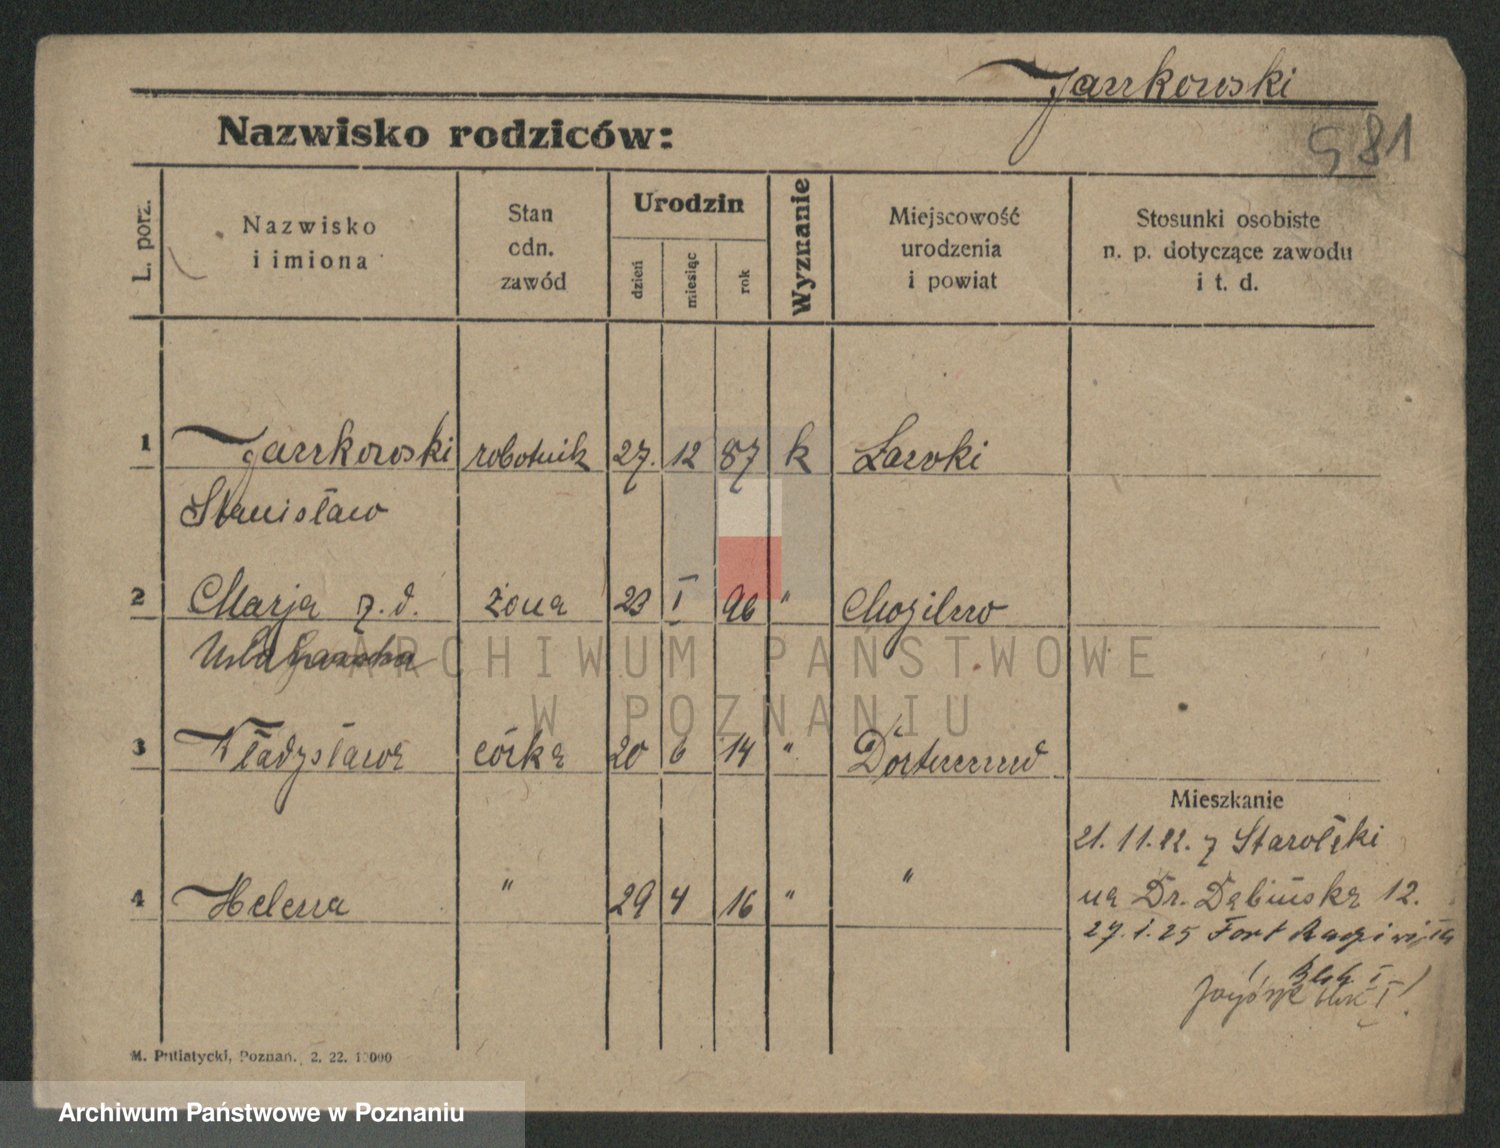 Jarrkowski
Nazwisko rodziców:
981
L. porz.
Nazwisko
i imiona
Stan
cdn.
zawód
Urodzin
dzień
miesiąc
rok
Wyznanie
Miejscowość
urodzenia
i powiat
Stosunki osobiste
n. p. dotyczące zawodu
i t. d.
1 Jarrkowski robotnik 27. 12 87 k Ławki
Stanisław
2 Marja z. d. żona 23 I 96 " Mogilno
3 Władysława córka 20 6 14 " Dortmund
Mieszkanie
21. 11. 22. z Starołęki
4 Helena " 29 4 16 " "
na Dr. Dębińska 12.
27. 1. 25 Fort
M. Putiatycki, Poznań. 2. 22. 10000
ARCHIWUM PAŃSTWOWE
W POZNANIU
Archiwum Państwowe w Poznaniu